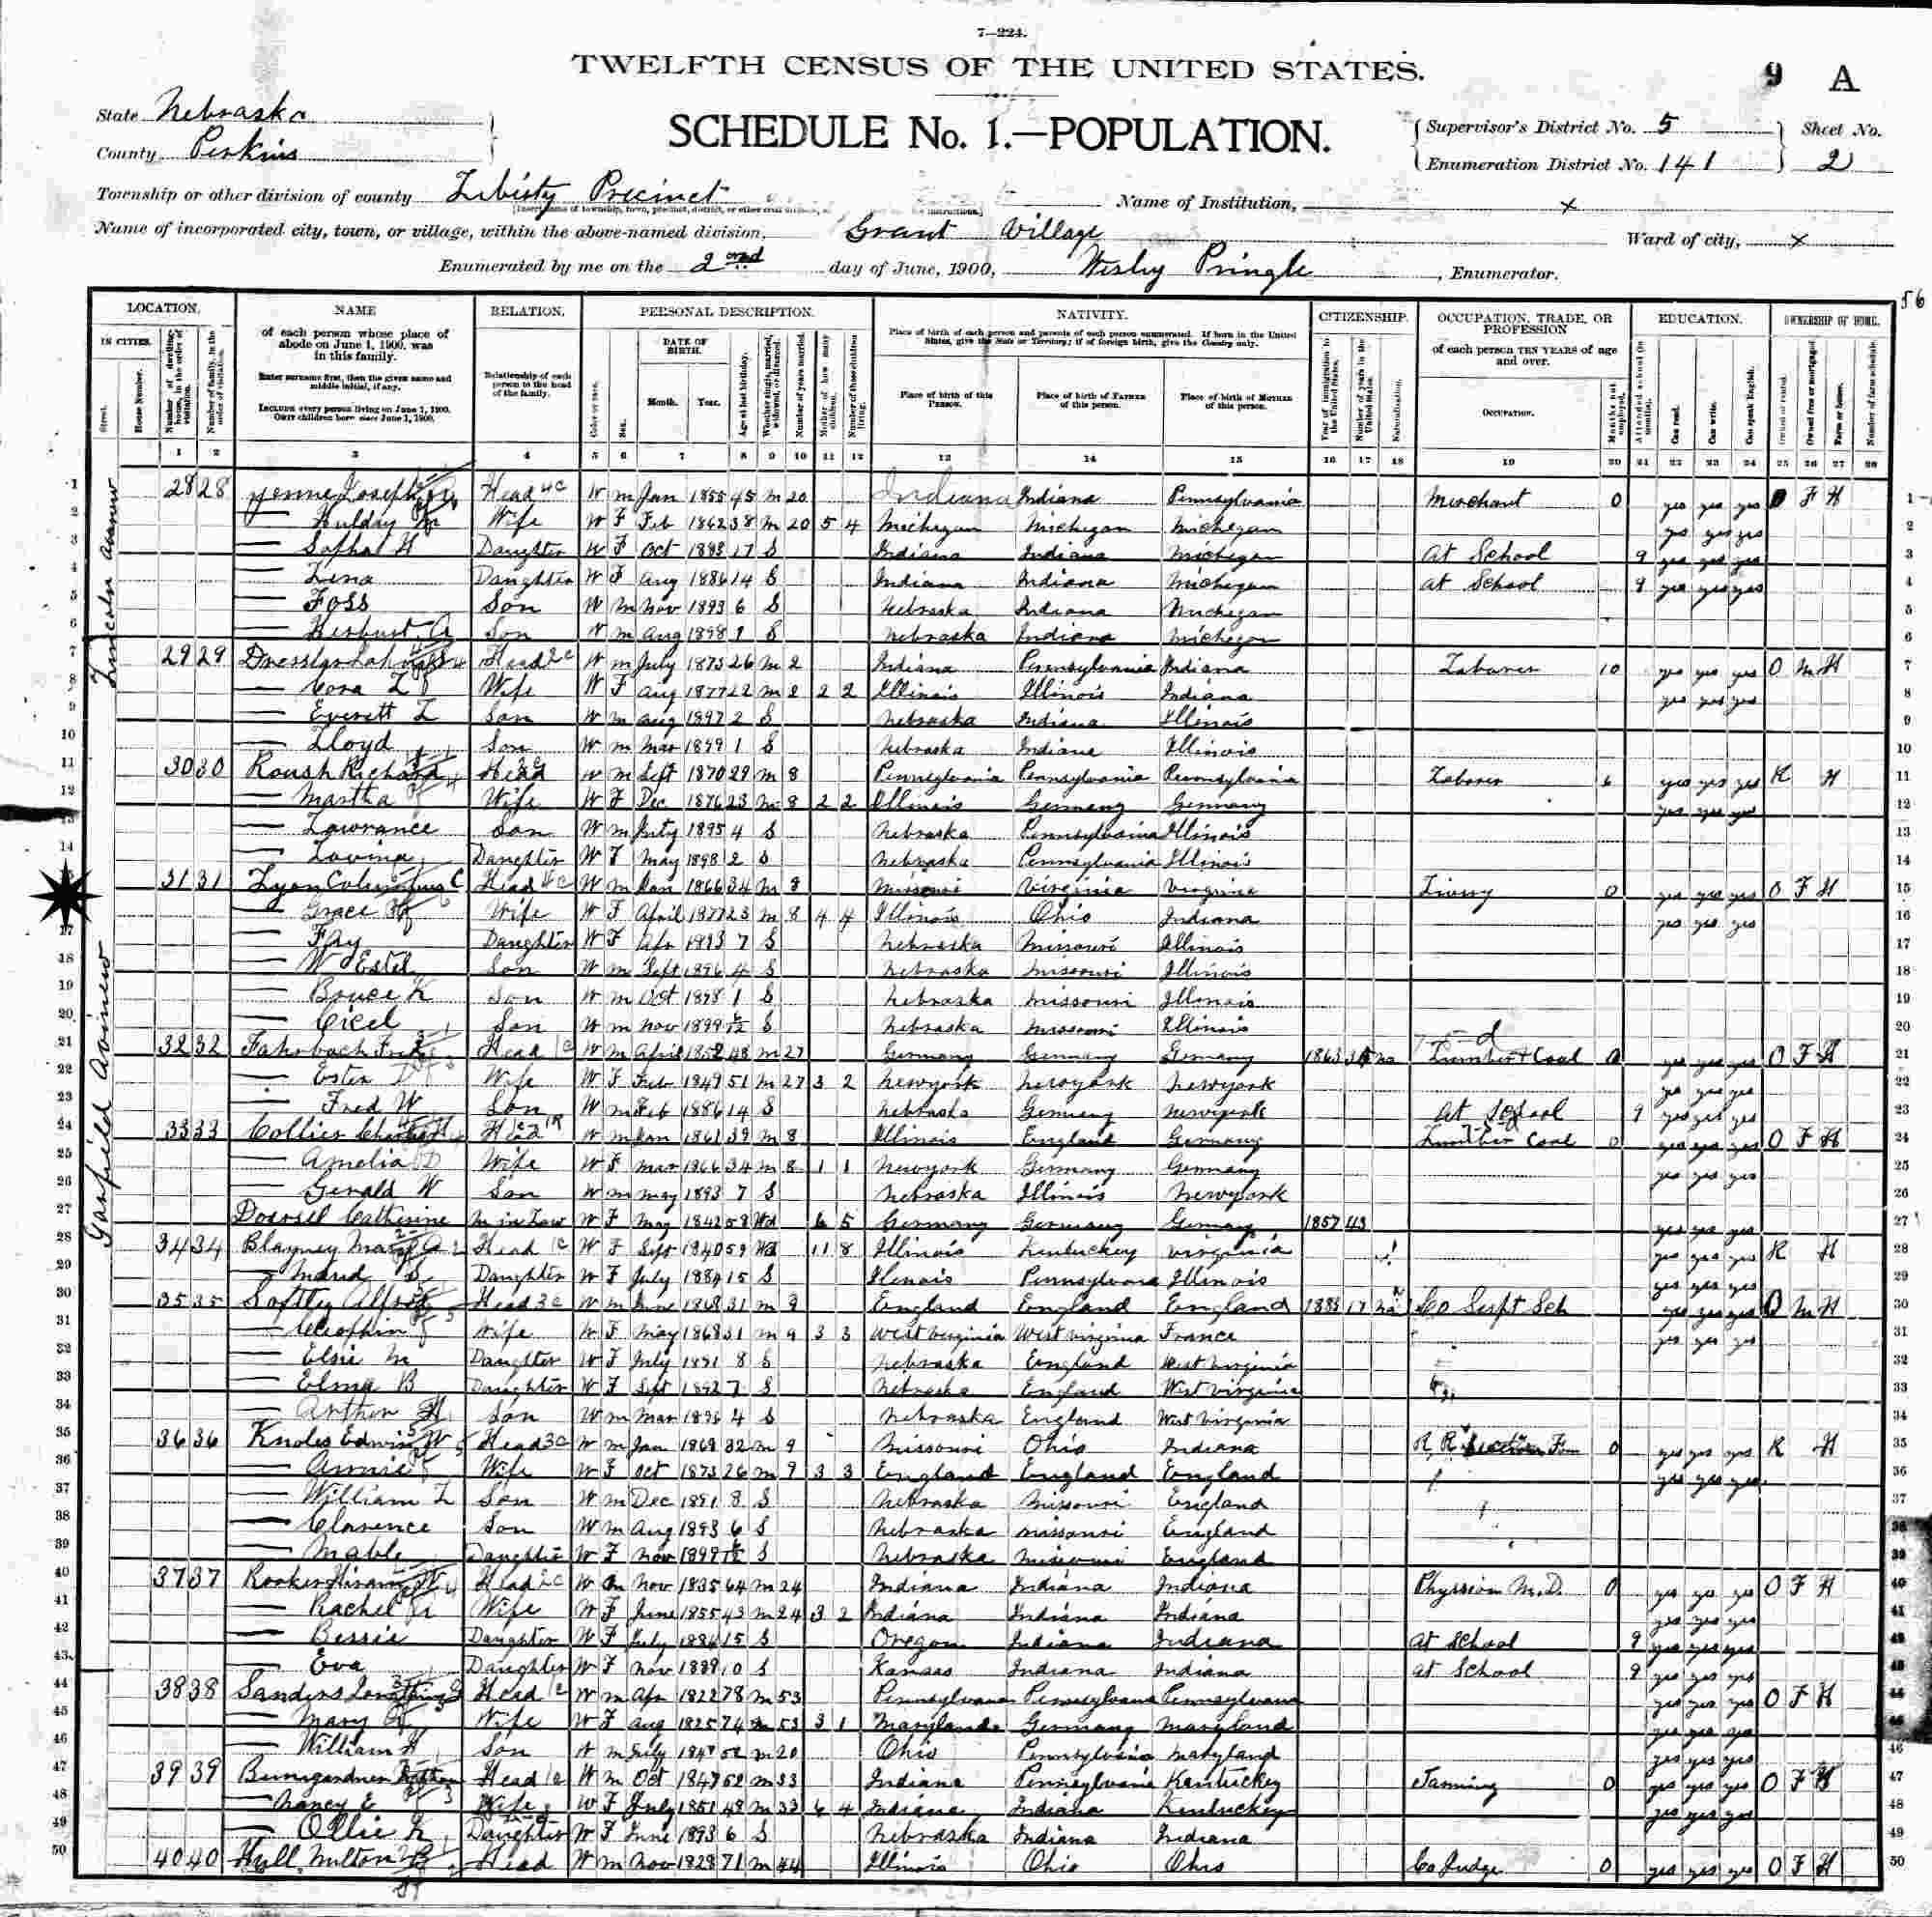 7—224.
TWELFTH CENSUS OF THE UNITED STATES.
9 A
State Nebraska
County Perkins
SCHEDULE No. 1.—POPULATION.
Supervisor's District No. 5
Enumeration District No. 141
Sheet No.
2
Township or other division of county Liberty Precinct
Name of Institution, x
Name of incorporated city, town, or village, within the above-named division, Grant Village
Ward of city, x
Enumerated by me on the 2nd day of June, 1900, Wesley Pringle, Enumerator.
56
LOCATION. NAME RELATION. PERSONAL DESCRIPTION. NATIVITY. CITIZENSHIP. OCCUPATION, TRADE, OR PROFESSION EDUCATION. OWNERSHIP OF HOME.
IN CITIES. of each person whose place of abode on June 1, 1900, was in this family. Relationship of each person to the head of the family. DATE OF BIRTH. of each person TEN YEARS of age and over.
Enter surname first, then the given name and middle initial, if any.
INCLUDE every person living on June 1, 1900. OMIT children born since June 1, 1900.
Street. House Number. Month. Year. Place of birth of this PERSON. Place of birth of FATHER of this person. Place of birth of MOTHER of this person. Naturalization. OCCUPATION. Can read. Can write. Can speak English.
1 2 3 4 5 6 7 8 9 10 11 12 13 14 15 16 17 18 19 20 21 22 23 24 25 26 27 28
Garfield
1 28 28 Joseph Head W m Jan 1855 45 m 20 Indiana Indiana Pennsylvania Merchant 0 yes yes yes O F H 1
2 — Hulday Wife W F Feb 1862 38 m 20 5 4 Michigan Michigan Michigan yes yes yes 2
3 — H Daughter W F Oct 17 S Indiana Indiana Michigan At School 9 yes yes yes 3
4 — Lena Daughter W F Aug 1886 14 S Indiana Indiana Michigan at School 9 yes yes yes 4
5 — Foss Son W m Nov 1893 6 S Nebraska Indiana Michigan 5
6 — Son W m Aug 1898 1 S Nebraska Indiana Michigan 6
7 29 29 Dressler Head W m July 1873 26 m 2 Indiana Pennsylvania Indiana Laborer 10 yes yes yes O M H 7
8 — Cora L Wife W F Aug 1877 22 m 2 2 2 Illinois Illinois Indiana yes yes yes 8
9 — Everett L Son W m Aug 1897 2 S Nebraska Indiana Illinois 9
10 — Lloyd Son W m Mar 1899 1 S Nebraska Indiana Illinois 10
11 30 30 Roush Richard Head W m Sept 1870 29 m 8 Pennsylvania Pennsylvania Pennsylvania Laborer 6 yes yes yes R H 11
12 — Martha Wife W F Dec 1876 23 m 8 2 2 Illinois Germany Germany yes yes yes 12
13 — Lawrance Son W m July 1895 4 S Nebraska Pennsylvania Illinois 13
14 — Lovina Daughter W F May 1898 2 S Nebraska Pennsylvania Illinois 14
31 31 Lyon Columbus C Head W m Jan 1866 34 m 8 Missouri Virginia Virginia Livery 0 yes yes yes O F H 15
— Grace Wife W F April 1877 23 m 8 4 4 Illinois Ohio Indiana yes yes yes 16
17 — Fay Daughter W F Apr 1893 7 S Nebraska Missouri Illinois 17
18 — W Estel Son W m Sept 1896 4 S Nebraska Missouri Illinois 18
19 — Bruce K Son W m Oct 1898 1 S Nebraska Missouri Illinois 19
20 — Cicel Son W m Nov 1899 S Nebraska Missouri Illinois 20
21 32 32 Fahrbach Head W m April 1852 48 m 27 Germany Germany Germany 1863 na Lumber & Coal 0 yes yes yes O F H 21
22 — Ester Wife W F Feb 1849 51 m 27 3 2 Newyork Newyork Newyork yes yes yes 22
23 — Fred W Son W m Feb 1886 14 S Nebraska Germany Newyork at School 9 yes yes yes 23
24 33 33 Collier Head W m Jan 1861 39 m 8 Illinois England Germany Lumber Coal 0 yes yes yes O F H 24
25 — Amelia D Wife W F Mar 1866 34 m 8 1 1 Newyork Germany Germany yes yes yes 25
26 — Gerald W Son W m May 1893 7 S Nebraska Illinois Newyork 26
27 Catherine M in Law W F May 1842 58 Wd 6 5 Germany Germany Germany 1857 43 yes yes yes 27
28 34 34 Blayney Mary Head W F Sept 1840 59 Wd 11 8 Illinois Kentucky Virginia yes yes yes R H 28
29 — Maud Daughter W F July 1884 15 S Illinois Pennsylvania Illinois yes yes yes 29
30 35 35 Softley Alfred Head W m June 1868 31 m 9 England England England 17 na Co Supt Sch yes yes yes O M H 30
31 — Wife W F May 1868 31 m 9 3 3 West Virginia West Virginia France yes yes yes 31
32 — Elsie M Daughter W F July 1891 8 S Nebraska England West Virginia 32
33 — Elma B Daughter W F Sept 1892 7 S Nebraska England West Virginia 33
34 — Arthur H Son W m Mar 1896 4 S Nebraska England West Virginia 34
35 36 36 Knoles Edwin W Head W m Jan 1868 32 m 9 Missouri Ohio Indiana R R Section 0 yes yes yes R H 35
36 — Annie Wife W F Oct 1873 26 m 9 3 3 England England England yes yes yes 36
37 — William L Son W m Dec 1891 8 S Nebraska Missouri England 37
38 — Clarence Son W m Aug 1893 6 S Nebraska Missouri England 38
39 — Mable Daughter W F Nov 1899 S Nebraska Missouri England 39
40 37 37 Rooker Hiram Head W m Nov 1835 64 m 24 Indiana Indiana Indiana Physsion M.D. 0 yes yes yes O F H 40
41 — Rachel Wife W F June 1855 43 m 24 3 2 Indiana Indiana Indiana yes yes yes 41
42 — Bessie Daughter W F July 1884 15 S Oregon Indiana Indiana at School 9 yes yes yes 42
43 — Eva Daughter W F Nov 1889 10 S Kansas Indiana Indiana at School 9 yes yes yes 43
44 38 38 Sanders Head W m Apr 1822 78 m 53 Pennsylvania Pennsylvania Pennsylvania yes yes yes O F H 44
45 — Mary Wife W F Aug 1825 74 m 53 3 1 Maryland Germany Maryland yes yes yes 45
46 — William H Son W m July 52 m 20 Ohio Pennsylvania Maryland yes yes yes 46
47 39 39 Bumgardner Head W m Oct 1847 52 m 33 Indiana Pennsylvania Kentucky 0 yes yes yes O F H 47
48 — Nancy E Wife W F July 1851 48 m 33 6 4 Indiana Indiana Kentucky yes yes yes 48
49 — Ollie K Daughter W F June 1893 6 S Nebraska Indiana Indiana 49
50 40 40 Hull Milton B Head W m Nov 1828 71 m 44 Illinois Ohio Ohio Co Judge 0 yes yes yes O F H 50